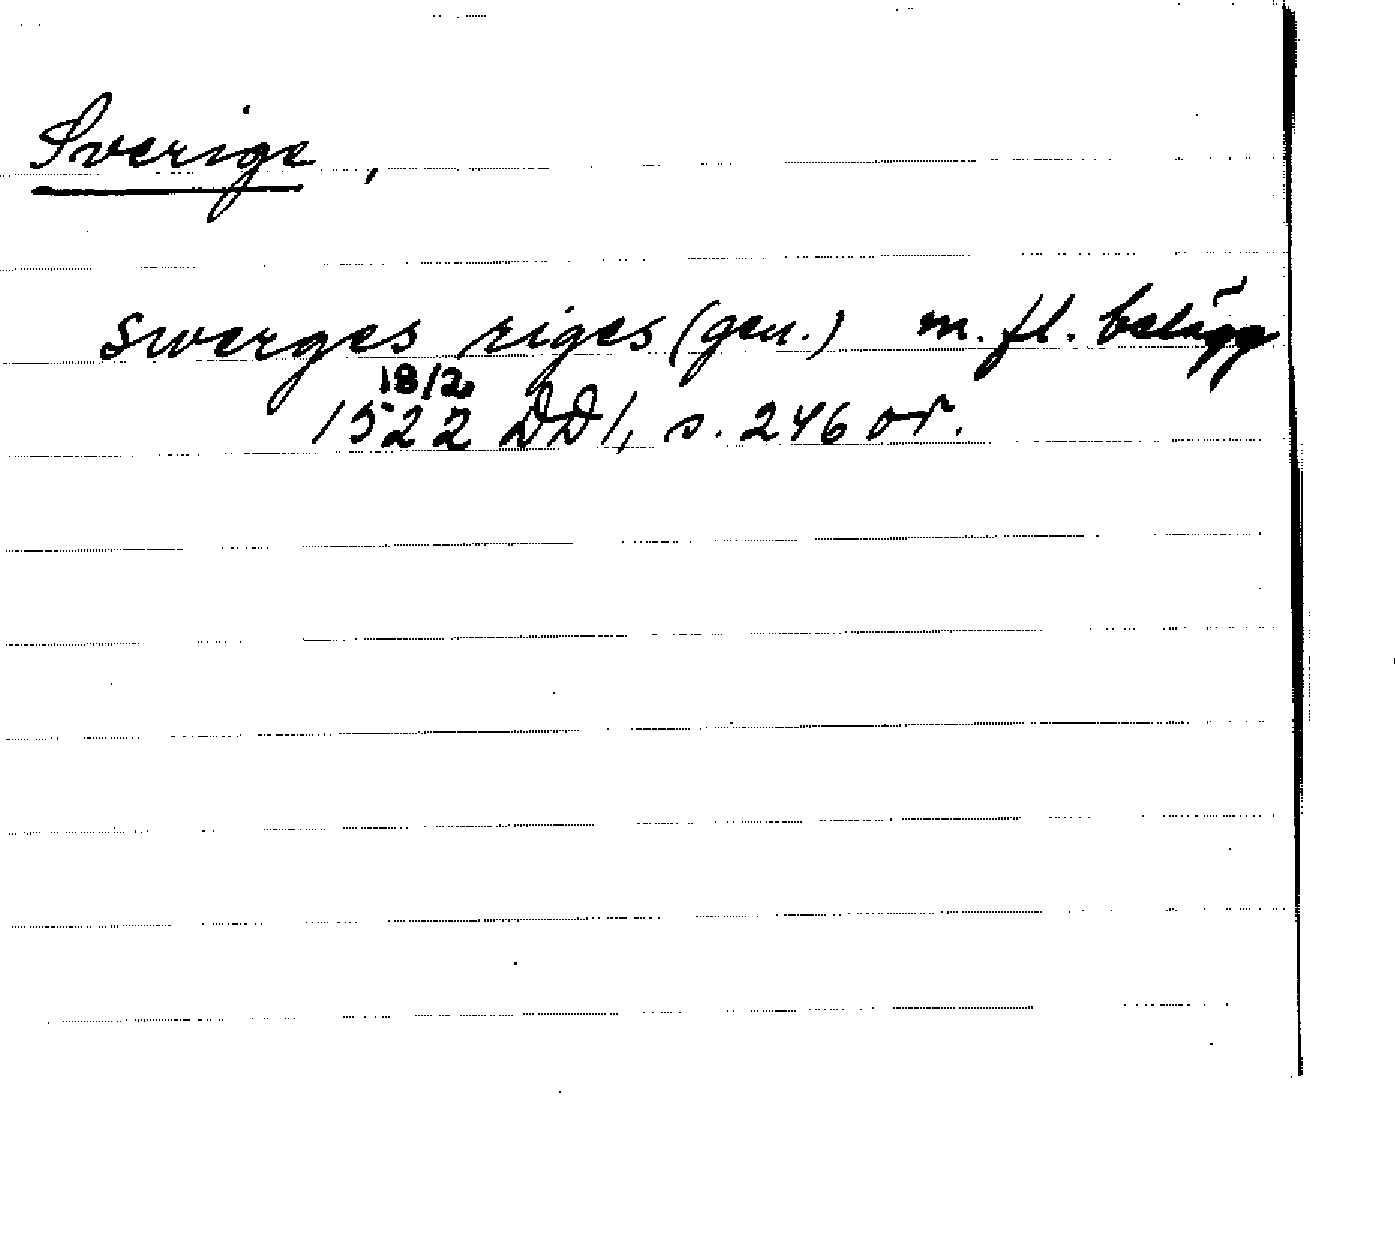 Sverige,
swerges riges (gen.) m. fl. belägg
18/2
1522 DD1, s. 246 or.